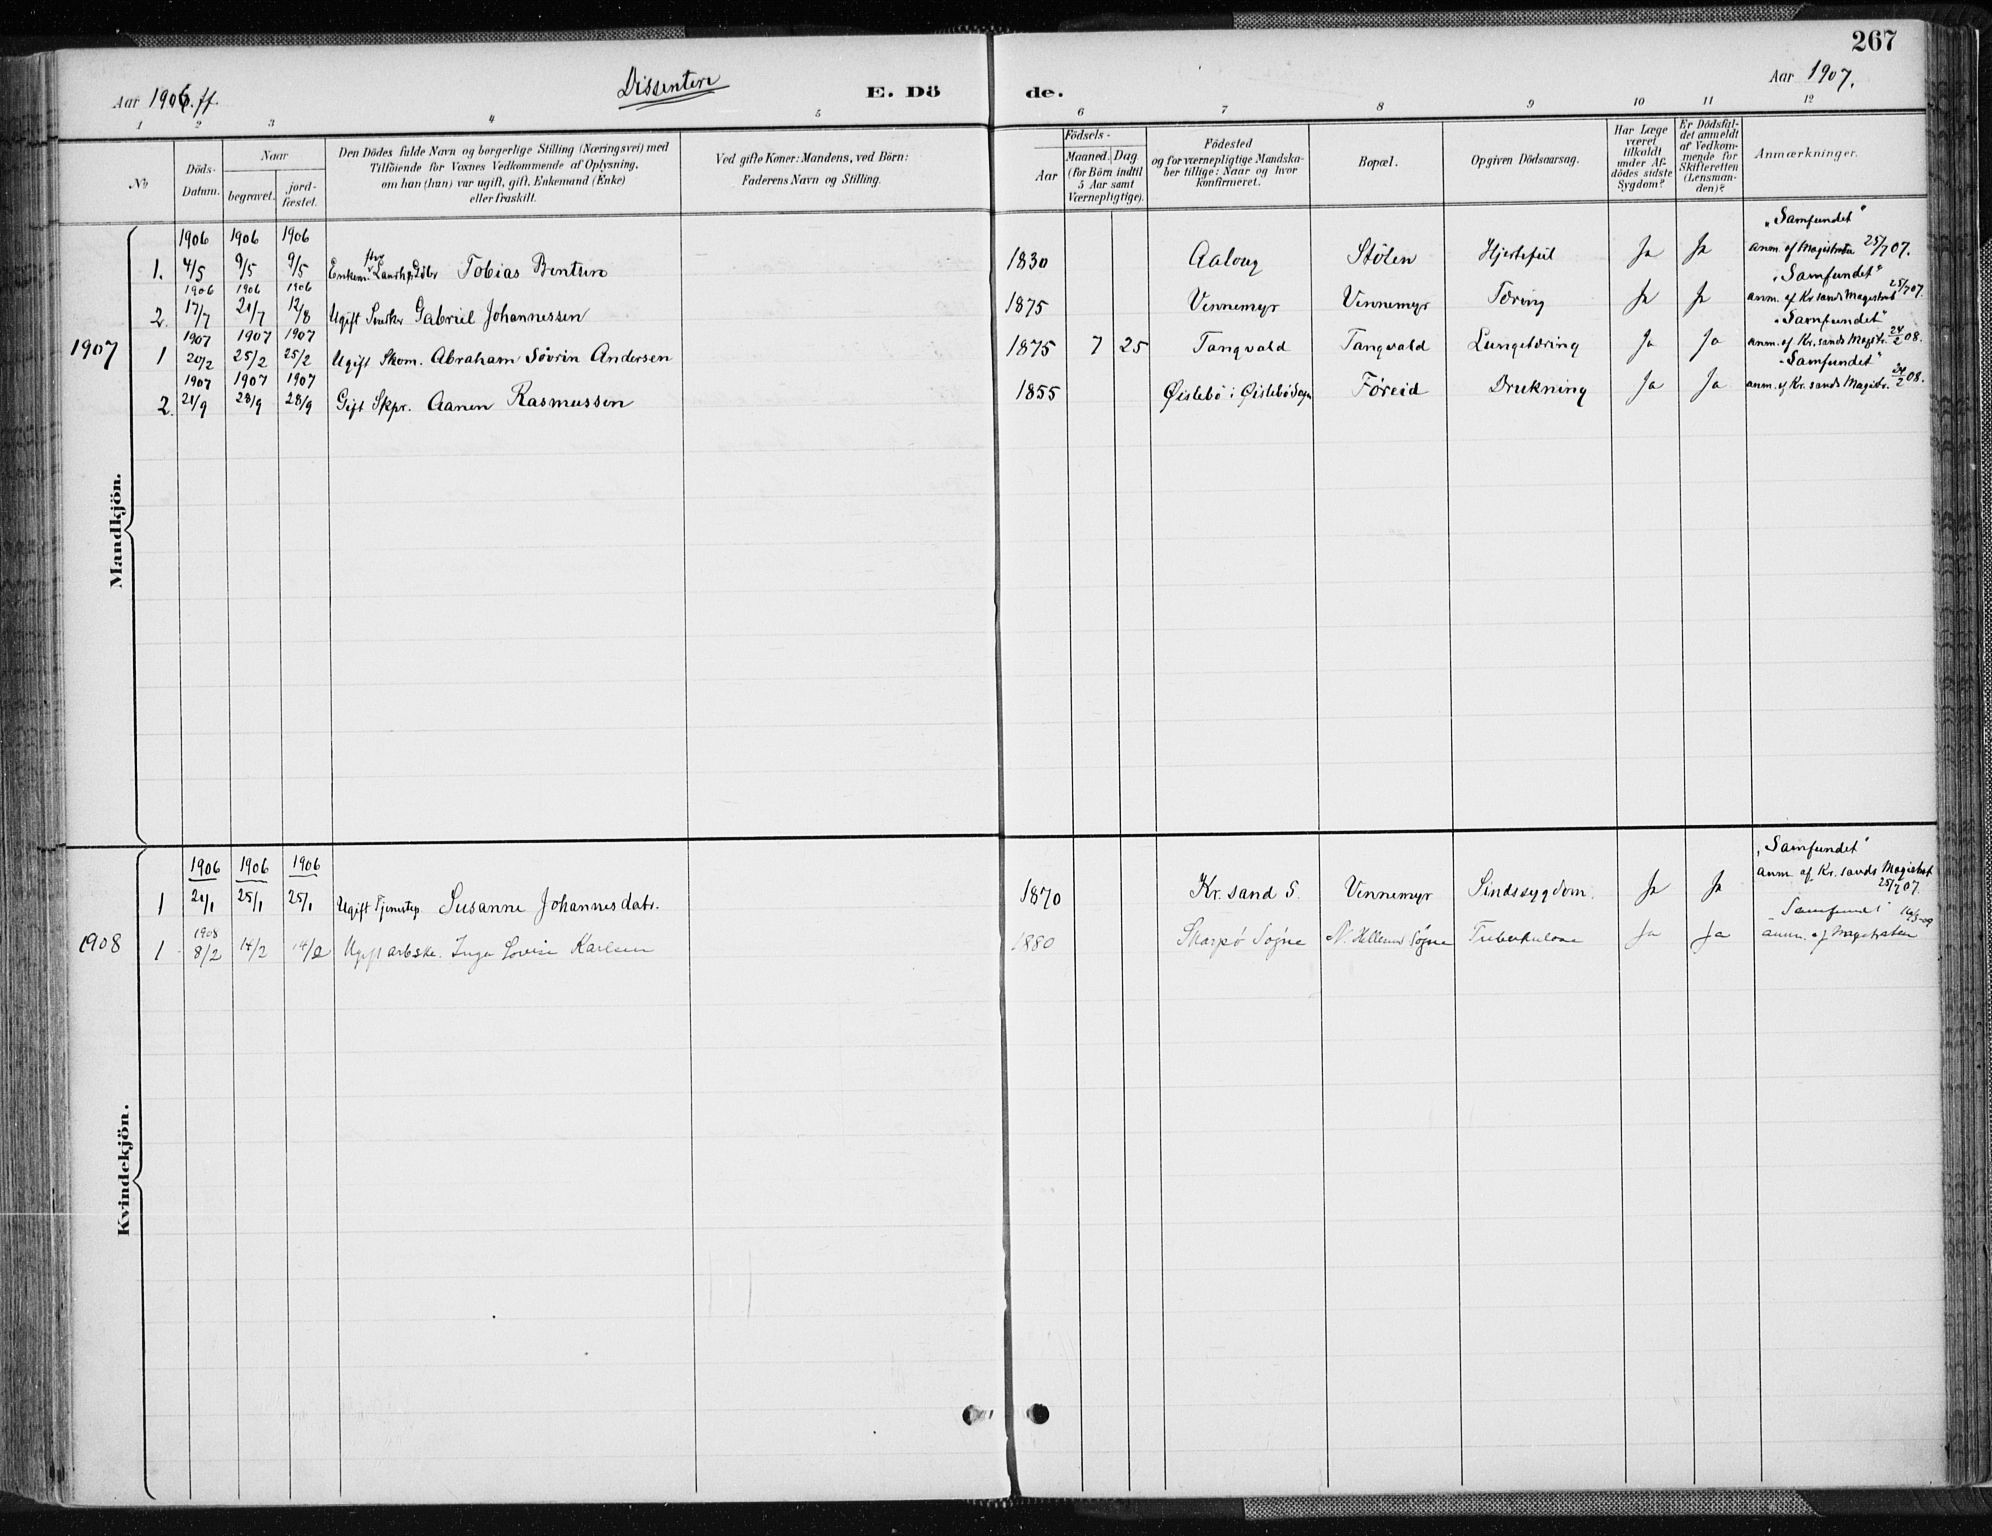 267
Aar 1906.ff.
Dissentere
E. Dö
de.
Aar 1907.
1 2 3 4 5 6 7 8 9 10 11 12
No
Döds-
Datum.
Naar
begravet.
jord-
fæstet.
Den Dödes fulde Navn og borgerlige Stilling (Næringsvei) med
Tilföiende for Voxnes Vedkommende af Oplysning,
om han (hun) var ugift, gift, Enkemand (Enke)
eller fraskilt.
Ved gifte Koner: Mandens, ved Börn:
Faderens Navn og Stilling.
Födsels-
Aar
Maaned.
Dag
(for Börn indtil
5 Aar samt
Værnepligtige).
Födested
og for værnepligtige Mandska-
ber tillige: Naar og hvor
konfirmeret.
Bopæl.
Opgiven Dödsaarsag.
Har Læge
været
tilkaldt
under Af-
dödes sidste
Sygdom?
Er Dödsfal-
det anmeldt
af Vedkom-
mende for
Skifteretten
(Lensman-
den)?
Anmærkninger.
Mandkjön.
1906 1906 1906 „Samfundet"
1. 4/5 9/5 9/5 Enkem. Tobias Bentsen 1830 Aalaug Stölen Hjertefeil Ja Ja anm. af Magistraten 25/7 07.
1906 1906 1906 „Samfundet"
2. 17/7 21/7 12/8 Ugift Snedker Gabriel Johannessen 1875 Vennemyr Vennemyr Tæring Ja Ja anm. af Kr.sands Magistrat 25/7 07.
1907 1907 1907 „Samfundet"
1907 1 20/2 25/2 25/2 Ugift Skom. Abraham Sövrin Andersen 1875 7 25 Tangvald Tangvald Lungetæring Ja Ja anm. af Kr.sands Magistr. 24/2 08.
1907 1907 1907 „Samfundet"
2. 21/9 28/9 28/9 Gift Skpr. Aanen Rasmussen 1855 Øislebö i Øislebö Sogn Föreid Drukning Ja Ja anm. af Kr.sands Magistr. 24/2 08.
Kvindekjön.
1906 1906 1906 „Samfundet"
1 21/1 25/1 25/1 Ugift Tjenestep. Susanne Johannesdatr. 1870 Kr.sand S. Vennemyr Sindssygdom. Ja Ja anm. af Kr.sands Magistrat
25/7 07.
1908 „Samfundet"
1908 1 8/2 14/2 14/2 Ugift arbske. Inga Lovise Karlsen 1880 Skarpö Sogne N. Hellenes Søgne Tuberkulose Ja Ja anm. af Magistraten